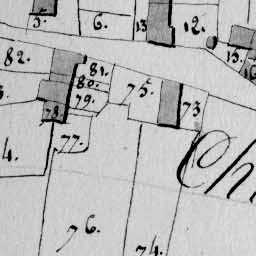 5.
6.
13
12.
13.
82.
81.
80.
79.
75.
73
78
77.
4.
Ch
76.
74.